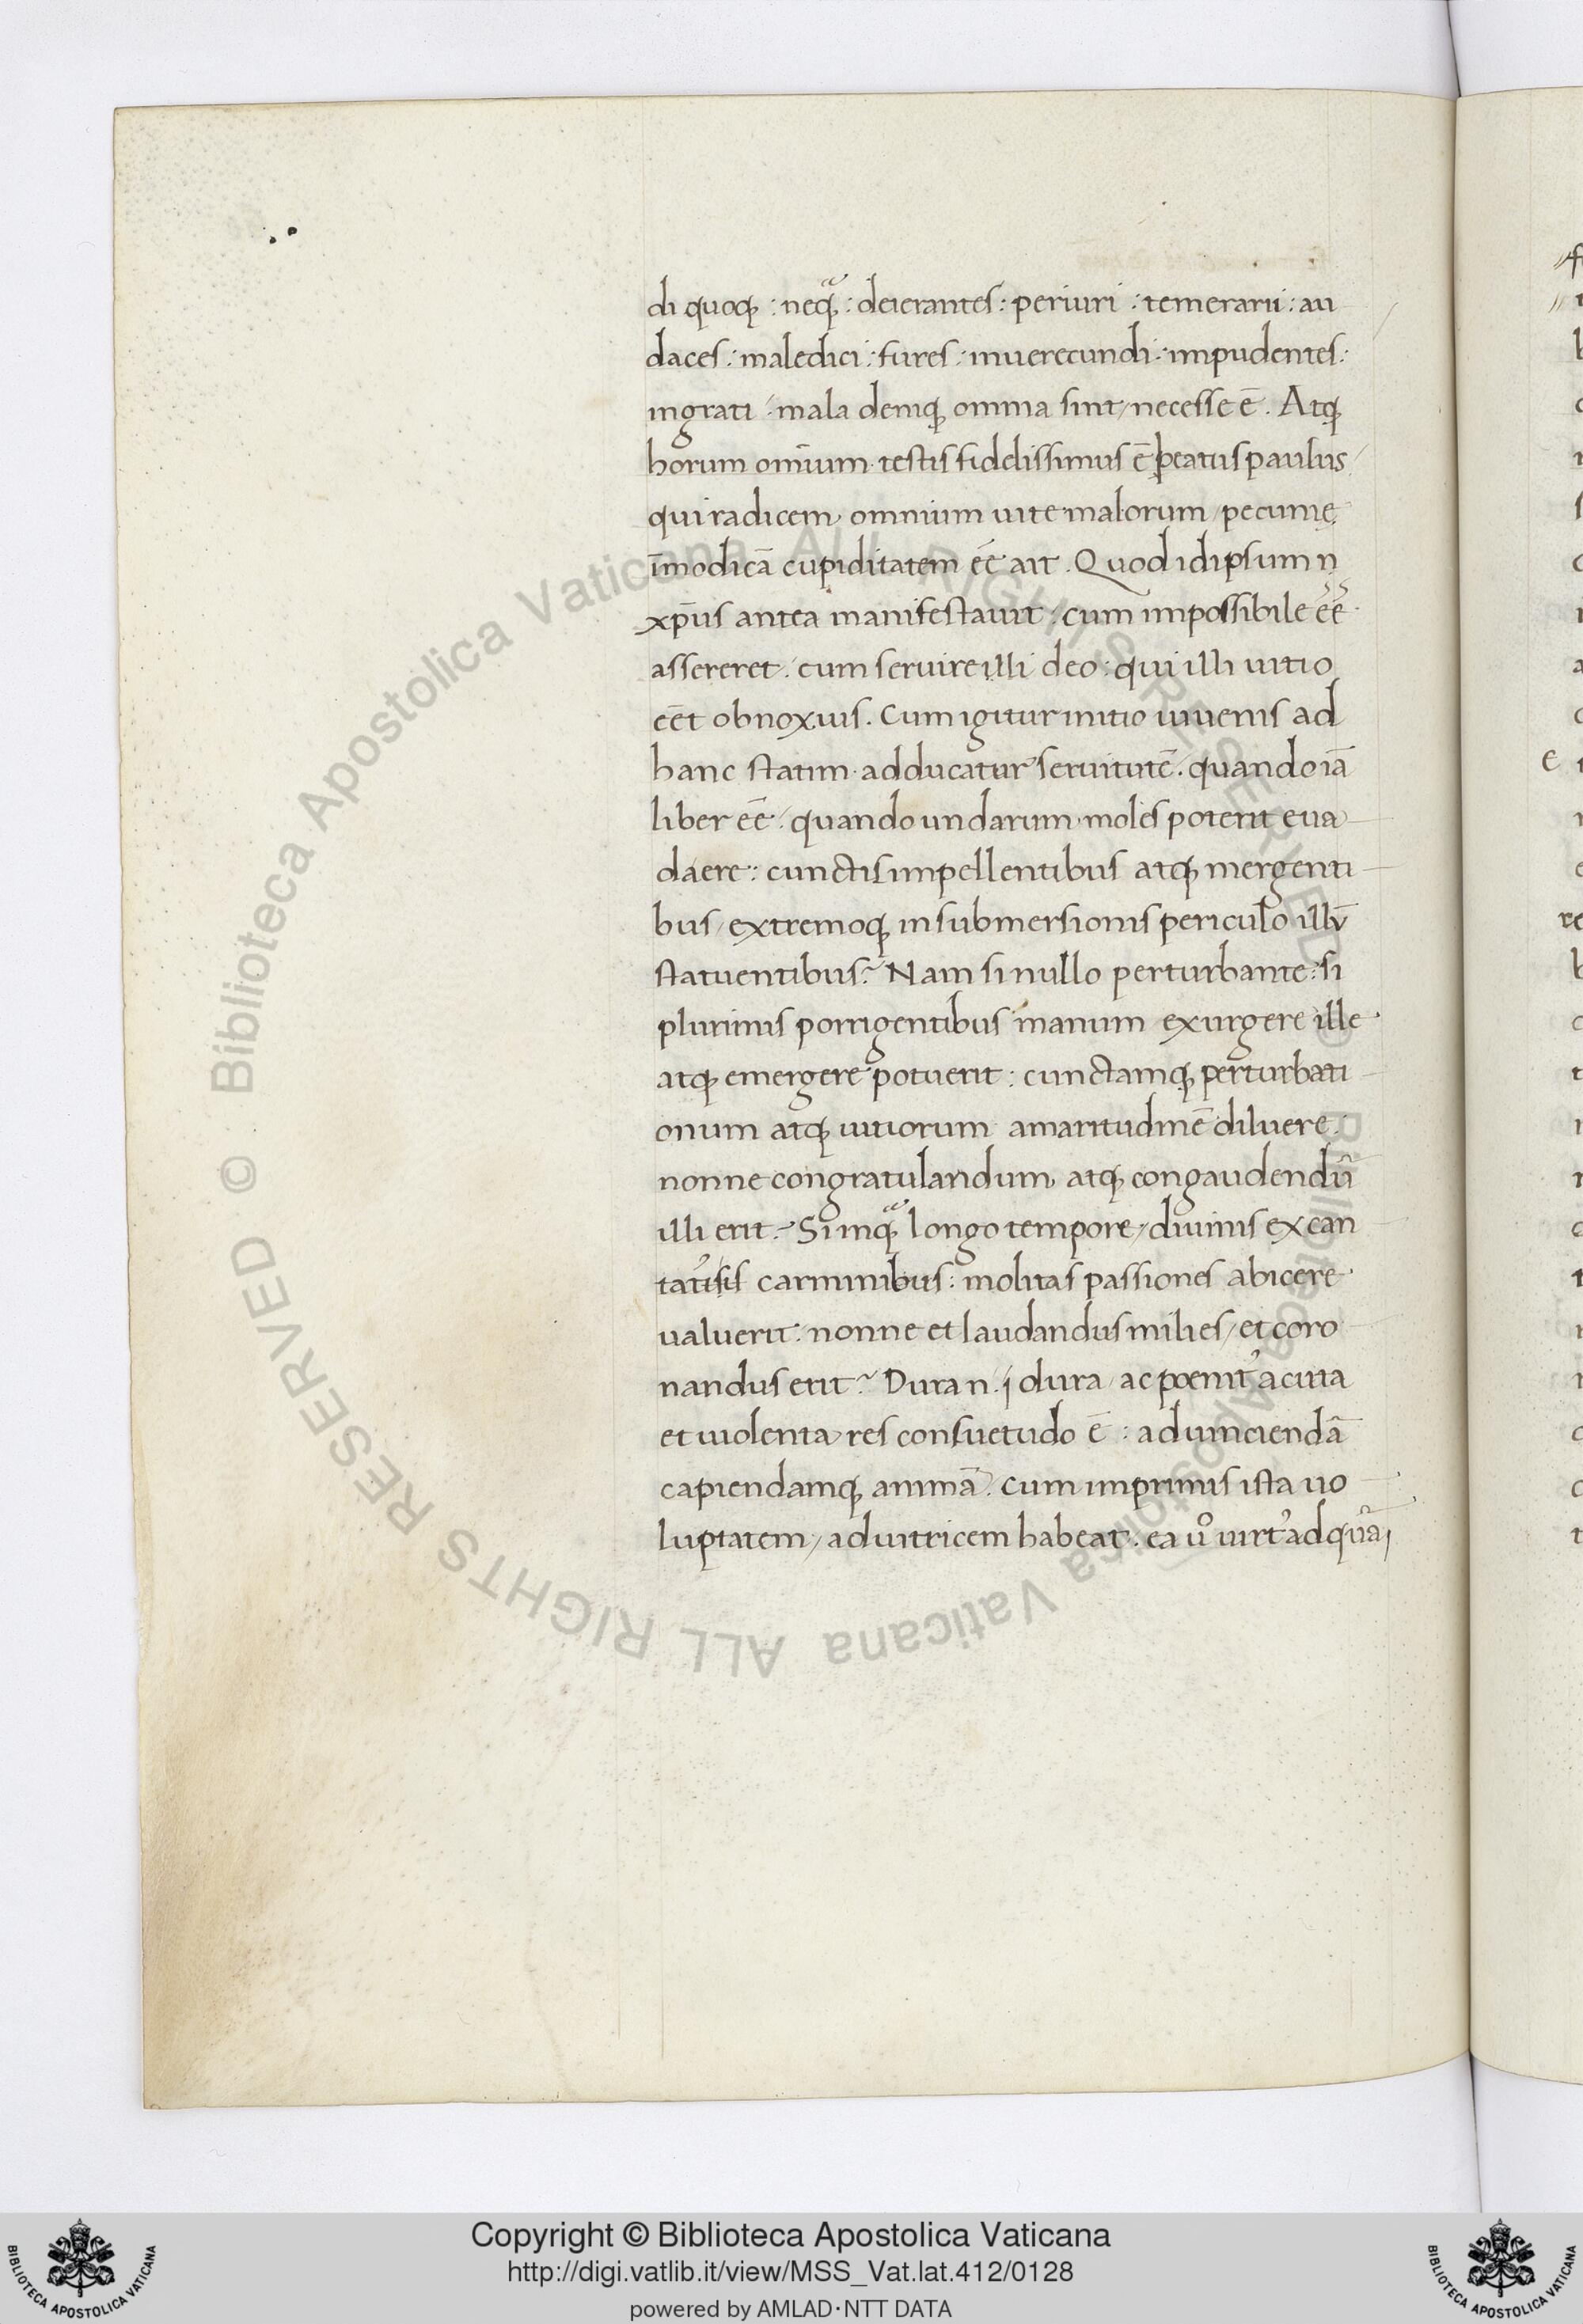 di quoqꝫ : neqᷓꝫ : deierantes : periuri : temerarii : au
daces : maledici : fures : inuerecundi : impudentes :
ingrati : mala deniqꝫ omnia sint / necesse ē . Atqꝫ
horum omīum testis fidelissimus ē beatus paulus /
qui radicem omnium uite malorum / pecunię
īmodicā cupiditatem eē ait . Quod id ipsum n
xp̄us antea manifestauit : cum impossibile eē
assereret : cum seruire illi deo : qui illi uitio
eēt obnoxius . Cum igitur initio iuuenis ad
hanc statim adducatur seruitutē . quando iā
liber eē : quando undarum moles poterit eua
daere : cunctis impellentibus atqꝫ mergenti
bus / extremoqꝫ in submersionis periculo illū
statuentibus ? Nam si nullo perturbante : si
plurimis porrigentibus manum exurgere ille
atqꝫ emergere potuerit : cunctamqꝫ perturbati
onum atqꝫ uitiorum amaritudinē diluere :
nonne congratulandum atqꝫ congaudendū
illi erit ? Si inqᷓꝫ longo tempore / diuinis excan
tatʼ sis carminibus : molitas passiones abicere
ualuerit : nonne et laudandus milies / et coro
nandus erit ? Dura n . j dura / ac poenitʼ acuta
et uiolenta res consuetudo ē : ad uinciendā
capiendamqꝫ animā . cum imprimis ista uo
luptatem / adiutricem habeat : ea uͦ uirtʼ ad quā j
Copyright © Biblioteca Apostolica Vaticana
http://digi.vatlib.it/view/MSS_Vat.lat.412/0128
powered by AMLAD·NTT DATA
BIBLIOTECA APOSTOLICA VATICANA
BIBLIOTECA APOSTOLICA VATICANA
© Biblioteca Apostolica Vaticana ALL RIGHTS RESERVED
© Biblioteca Apostolica Vaticana ALL RIGHTS RESERVED